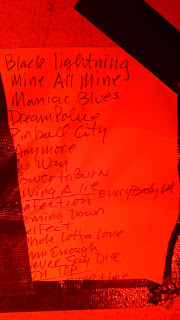 Black Lightning
Mine All Mine
Maniac Blues
Dream Police
Pinball City
Anymore
No Way
Power to Burn
Living A lie
Infection Everybody
Coming Down
Perfect
Whole Lotta Love
Man Enough
Never Say Die
On Top
time